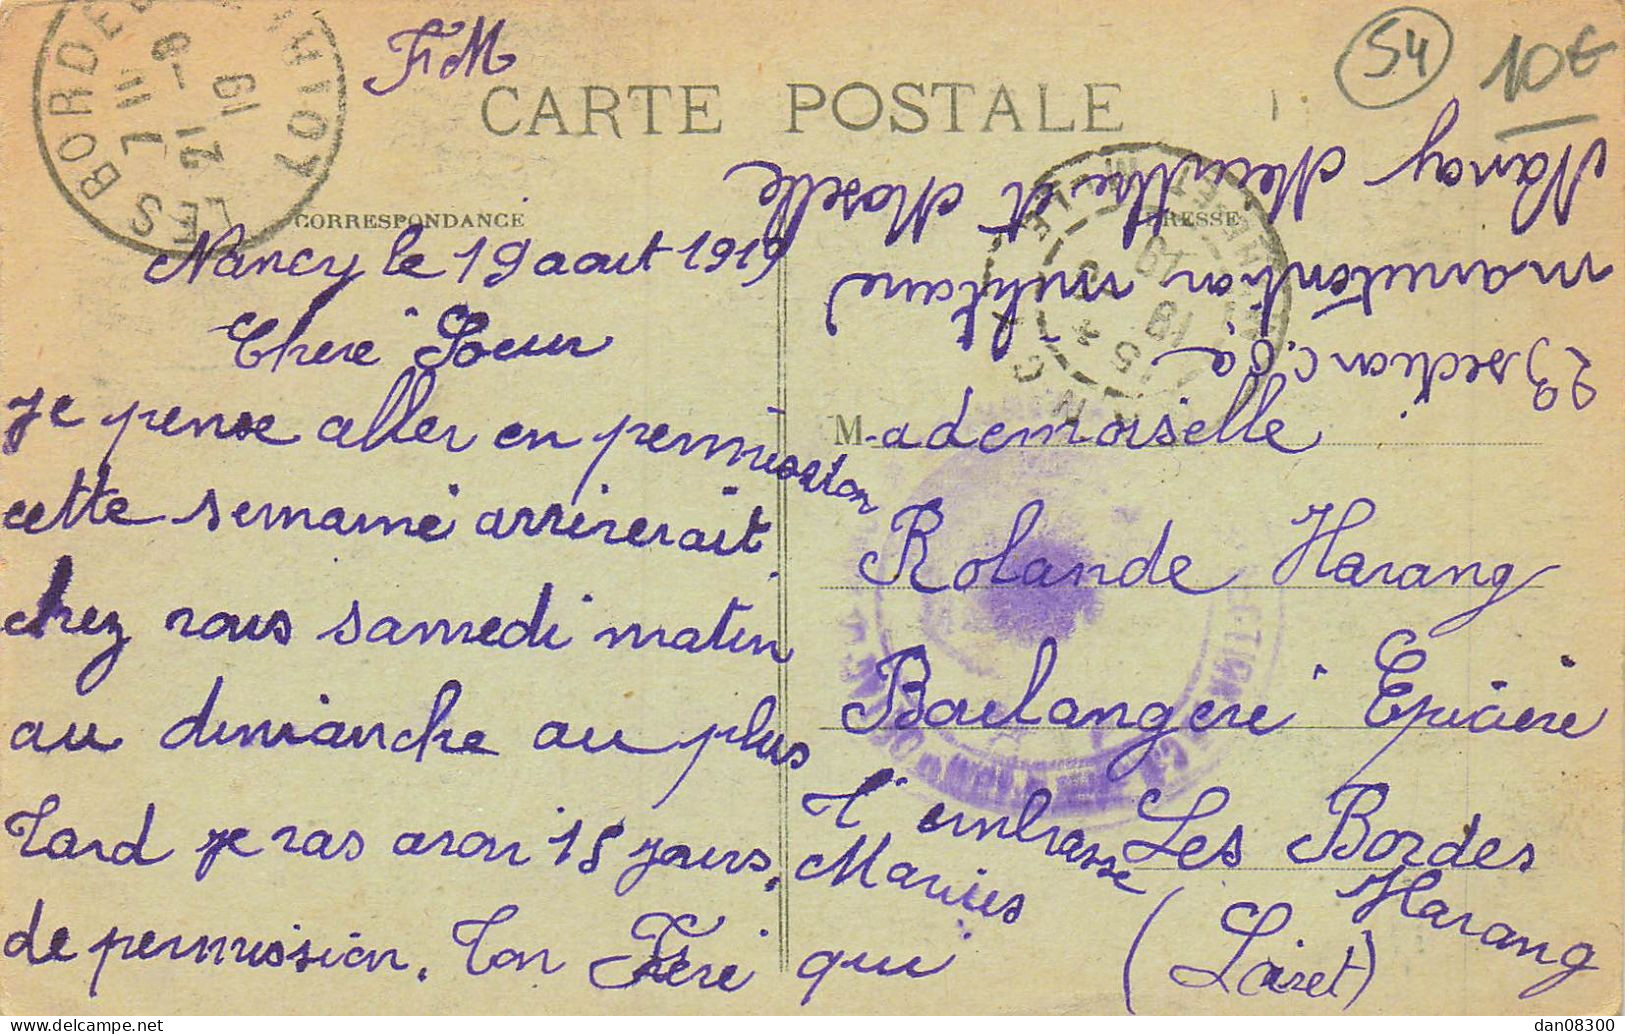 FM
CARTE POSTALE
54
10€
CORRESPONDANCE
ADRESSE
LES BORDES
LOIRET
Nancy le 19 aout 1919
Chere Soeur
Je pense aller en permission
cette semaine arriverait
chez nous samedi matin
au dimanche au plus
tard je vas avoir 15 jours
de permission. Ton Frere qui
t'embrasse
Marius
Harang
M-ademoiselle
Rolande Harang
Boulangere Epiciere
Les Bordes
(Loiret)
23 section c.o.a
manutention militaire
Nancy Meurthe et Moselle
delcampe.net
dan08300